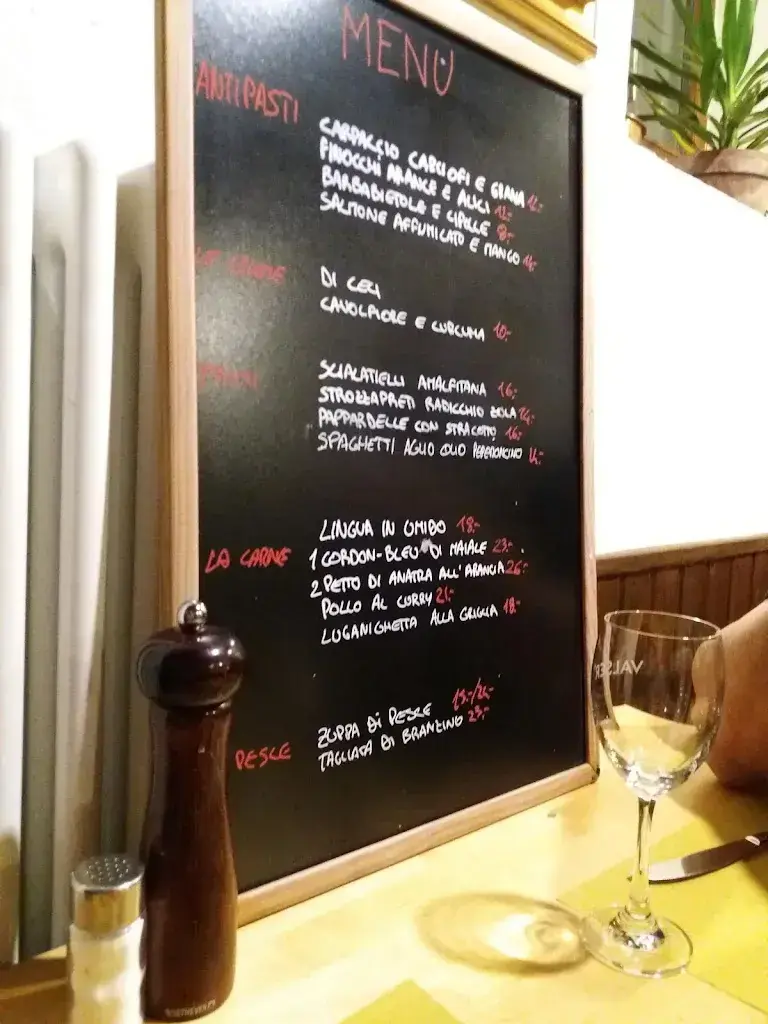 MENÙ
ANTIPASTI
CARPACCIO CARCIOFI E GRANA 12.-
FINOCCHI ARANCE E ALICI 12.-
BARBABIETOLE E CIPOLLE 8.-
SALMONE AFFUMICATO E MANGO 14.-
LE
DI CECI
CAVOLFIORE E CURCUMA 10.-
PRIMI
SCIALATIELLI AMALFITANA 16.-
STROZZAPRETI RADICCHIO ZOLA 14.-
PAPPARDELLE CON STRACOTTO 16.-
SPAGHETTI AGLIO OLIO PEPERONCINO 14.-
LA CARNE
LINGUA IN UMIDO 18.-
1 CORDON-BLEU DI MAIALE 23.-
2 PETTO DI ANATRA ALL'ARANCIA 26.-
POLLO AL CURRY 21.-
LUGANIGHETTA ALLA GRIGLIA 18.-
PESCE
ZUPPA DI PESCE
TAGLIATA DI BRANZINO 23.-
VALSER